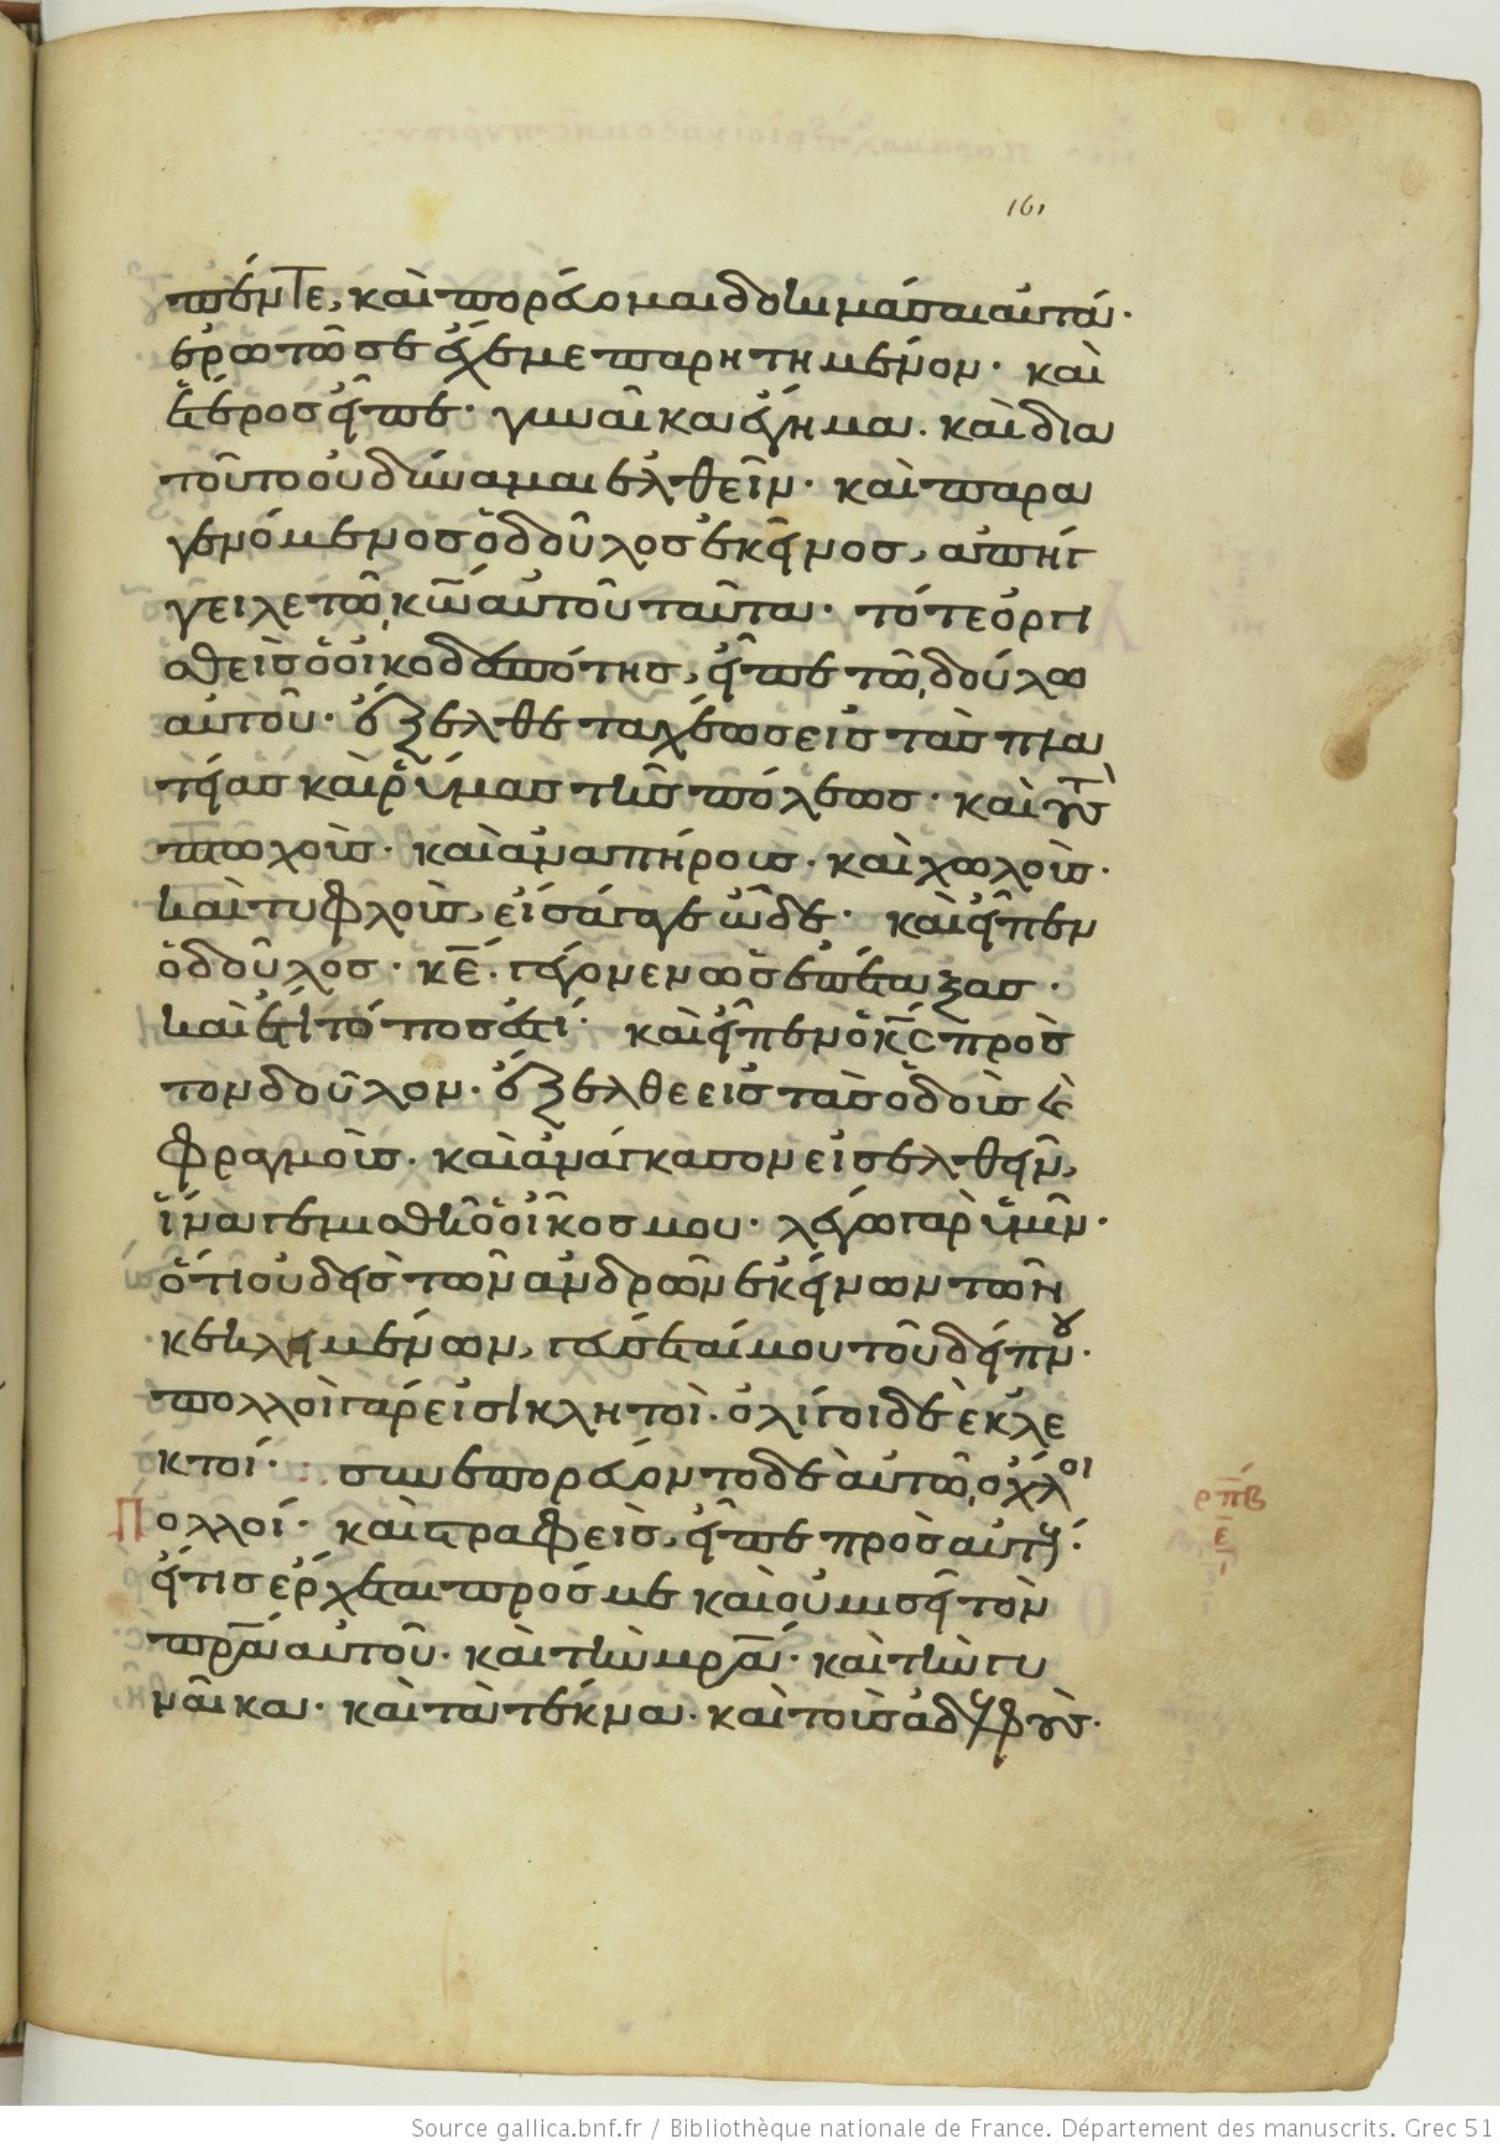 161
πέντε, καὶ πορεύομαι δοκιμάσαι αὐτά·
ἐρωτῶ σε ἔχε με παρητημένον· καὶ
ἕτερος εἶπε· γυναῖκα ἔγημα. καὶ δια
τοῦτο οὐ δύναμαι ἐλθεῖν· καὶ παρα
γενόμενος ὁ δοῦλος ἐκεῖνος, ἀπήγ
γειλε τῶ κω̅ αὐτοῦ ταῦτα· τότε ὀργι
σθεὶς ὁ οἰκοδεσπότης, εἶπε τῶ δούλω
αὐτοῦ· ἔξελθε ταχέως εἰς τὰς πλα
τείας καὶ ῥύμας τῆς πόλεως· καὶ τοὺς
πτωχοὺς· καὶ ἀναπήρους· καὶ χωλοὺς·
καὶ τυφλοὺς, εἰσάγαγε ὧδε· καὶ εἶπεν
ὁ δοῦλος· κε̅· γέγονεν ὡς ἐπέταξας·
καὶ ἔτι τόπος ἐστί· καὶ εἶπεν ὁ κς̅ πρὸς
τὸν δοῦλον· ἔξελθε εἰς τὰς ὁδοὺς καὶ
φραγμοὺς· καὶ ἀνάγκασον εἰσελθεῖν,
ἵνα γεμισθῆ ὁ οἶκος μου· λέγω γὰρ ὑμῖν·
ὅτι οὐδεὶς τῶν ἀνδρῶν ἐκείνων τῶν
κεκλημένων, γεύσεταί μου τοῦ δείπνου·
πολλοὶ γάρ εἰσι κλητοὶ· ὀλίγοι δὲ ἐκλε
κτοί· συνεπορεύοντο δὲ αὐτῶ ὄχλοι
Πολλοί· καὶ στραφεὶς, εἶπε πρὸς αὐτούς·
εἴ τις ἔρχεται πρός με καὶ οὐ μισεῖ τὸν
πρα̅ αὐτοῦ· καὶ τὴν μρα̅· καὶ τὴν γυ
ναῖκα· καὶ τὰ τέκνα· καὶ τοὺς ἀδελφοὺς·
ρπβ
ε
Source gallica.bnf.fr / Bibliothèque nationale de France. Département des manuscrits. Grec 51